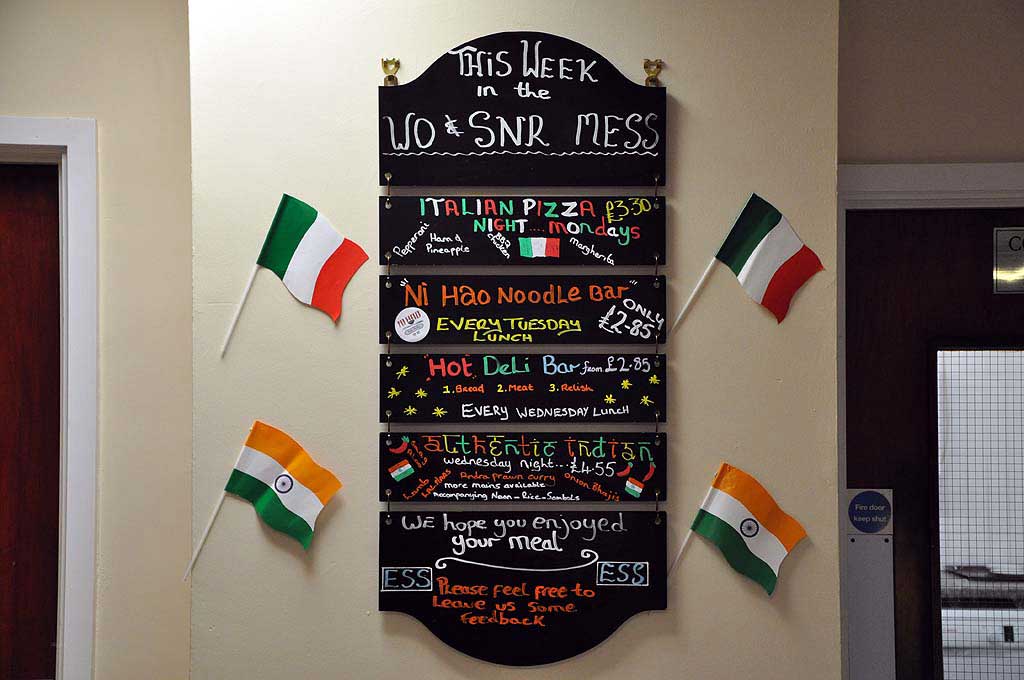 THIS WEEK
in the
WO & SNR MESS
ITALIAN PIZZA £3.30
NIGHT.... mondays
Pepperoni
Ham &
Pineapple
BBQ
chicken
margherita
"Ni Hao Noodle Bar"
ONLY
£2-85
EVERY TUESDAY
LUNCH
Hot Deli Bar from £2.85
1. Bread 2. Meat 3. Relish
EVERY WEDNESDAY LUNCH
authentic indian
wednesday night....£4.55
Andra prawn curry
Lamb
onion Bhajis
more mains available
Accompanying Naan - Rice - Sambols
WE hope you enjoyed
your meal
ESS
ESS
Please feel free to
Leave us some
feedback
Fire door
keep shut